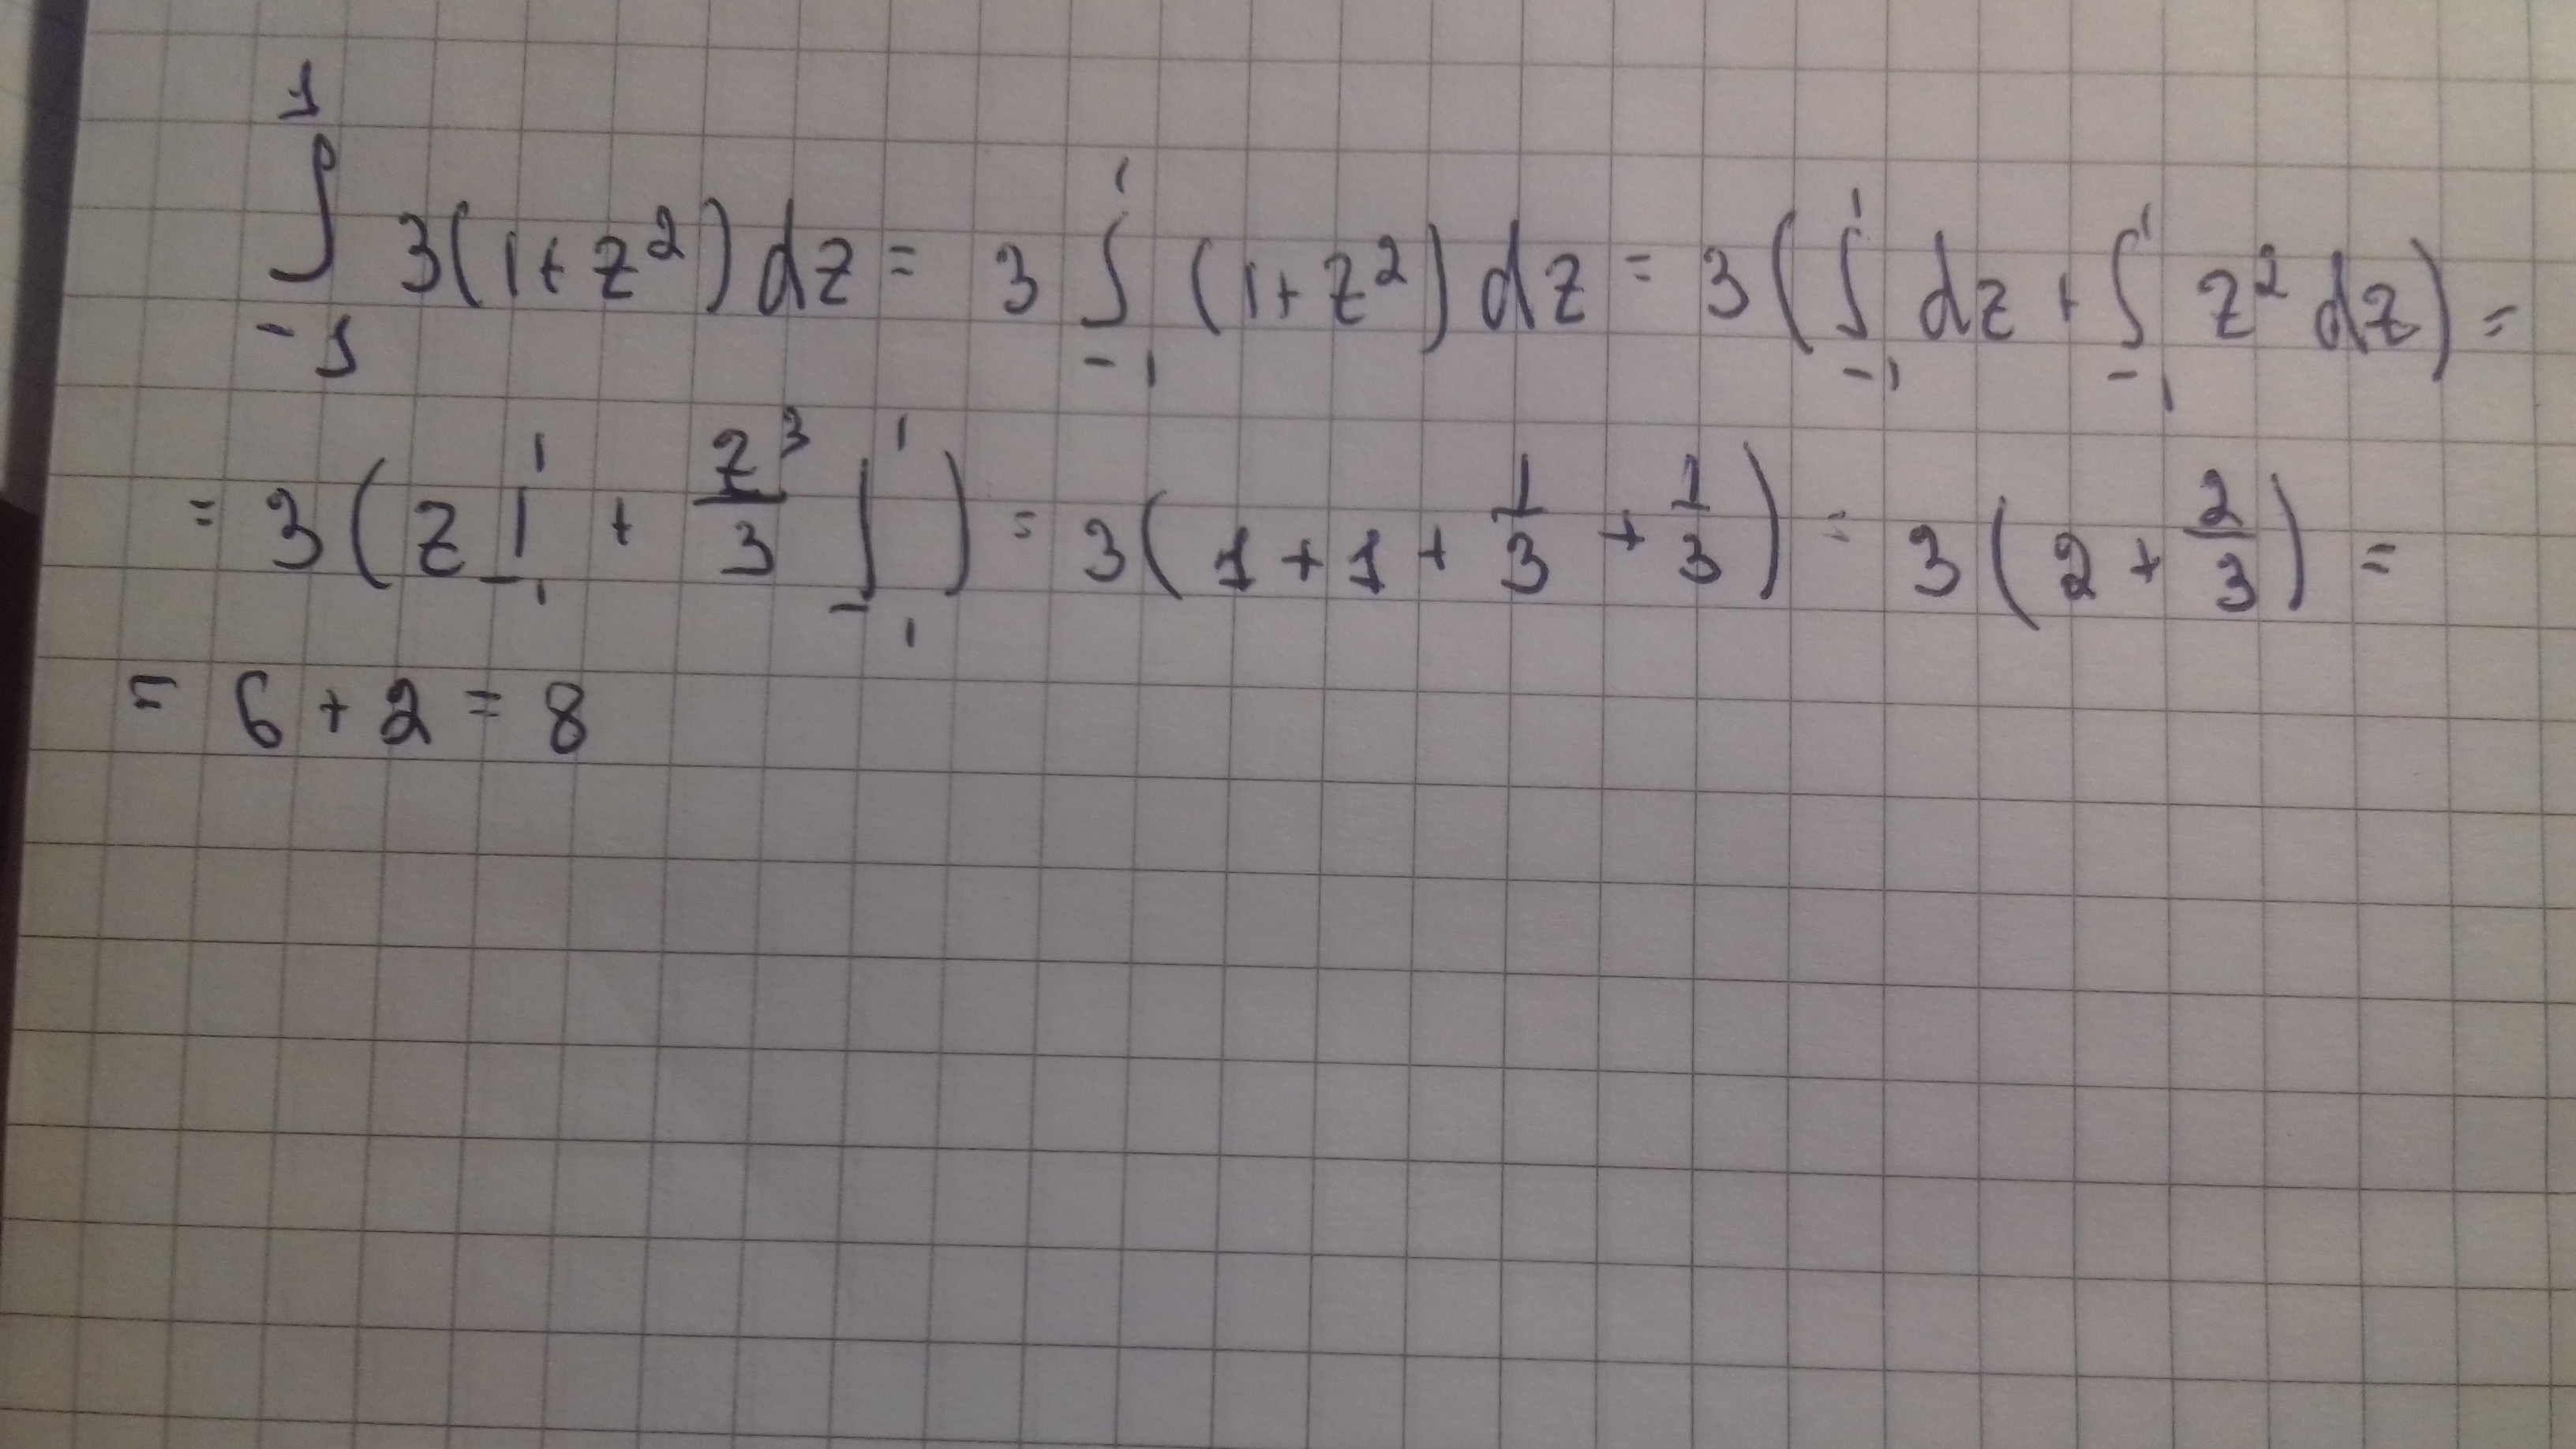 ∫_{-1}^{1} 3(1+z²)dz = 3 ∫_{-1}^{1} (1+z²)dz = 3(∫_{-1}^{1} dz + ∫_{-1}^{1} z² dz) =
= 3(z|_{-1}^{1} + z³/3 |_{-1}^{1}) = 3(1+1+1/3+1/3) = 3(2+2/3) =
= 6+2=8